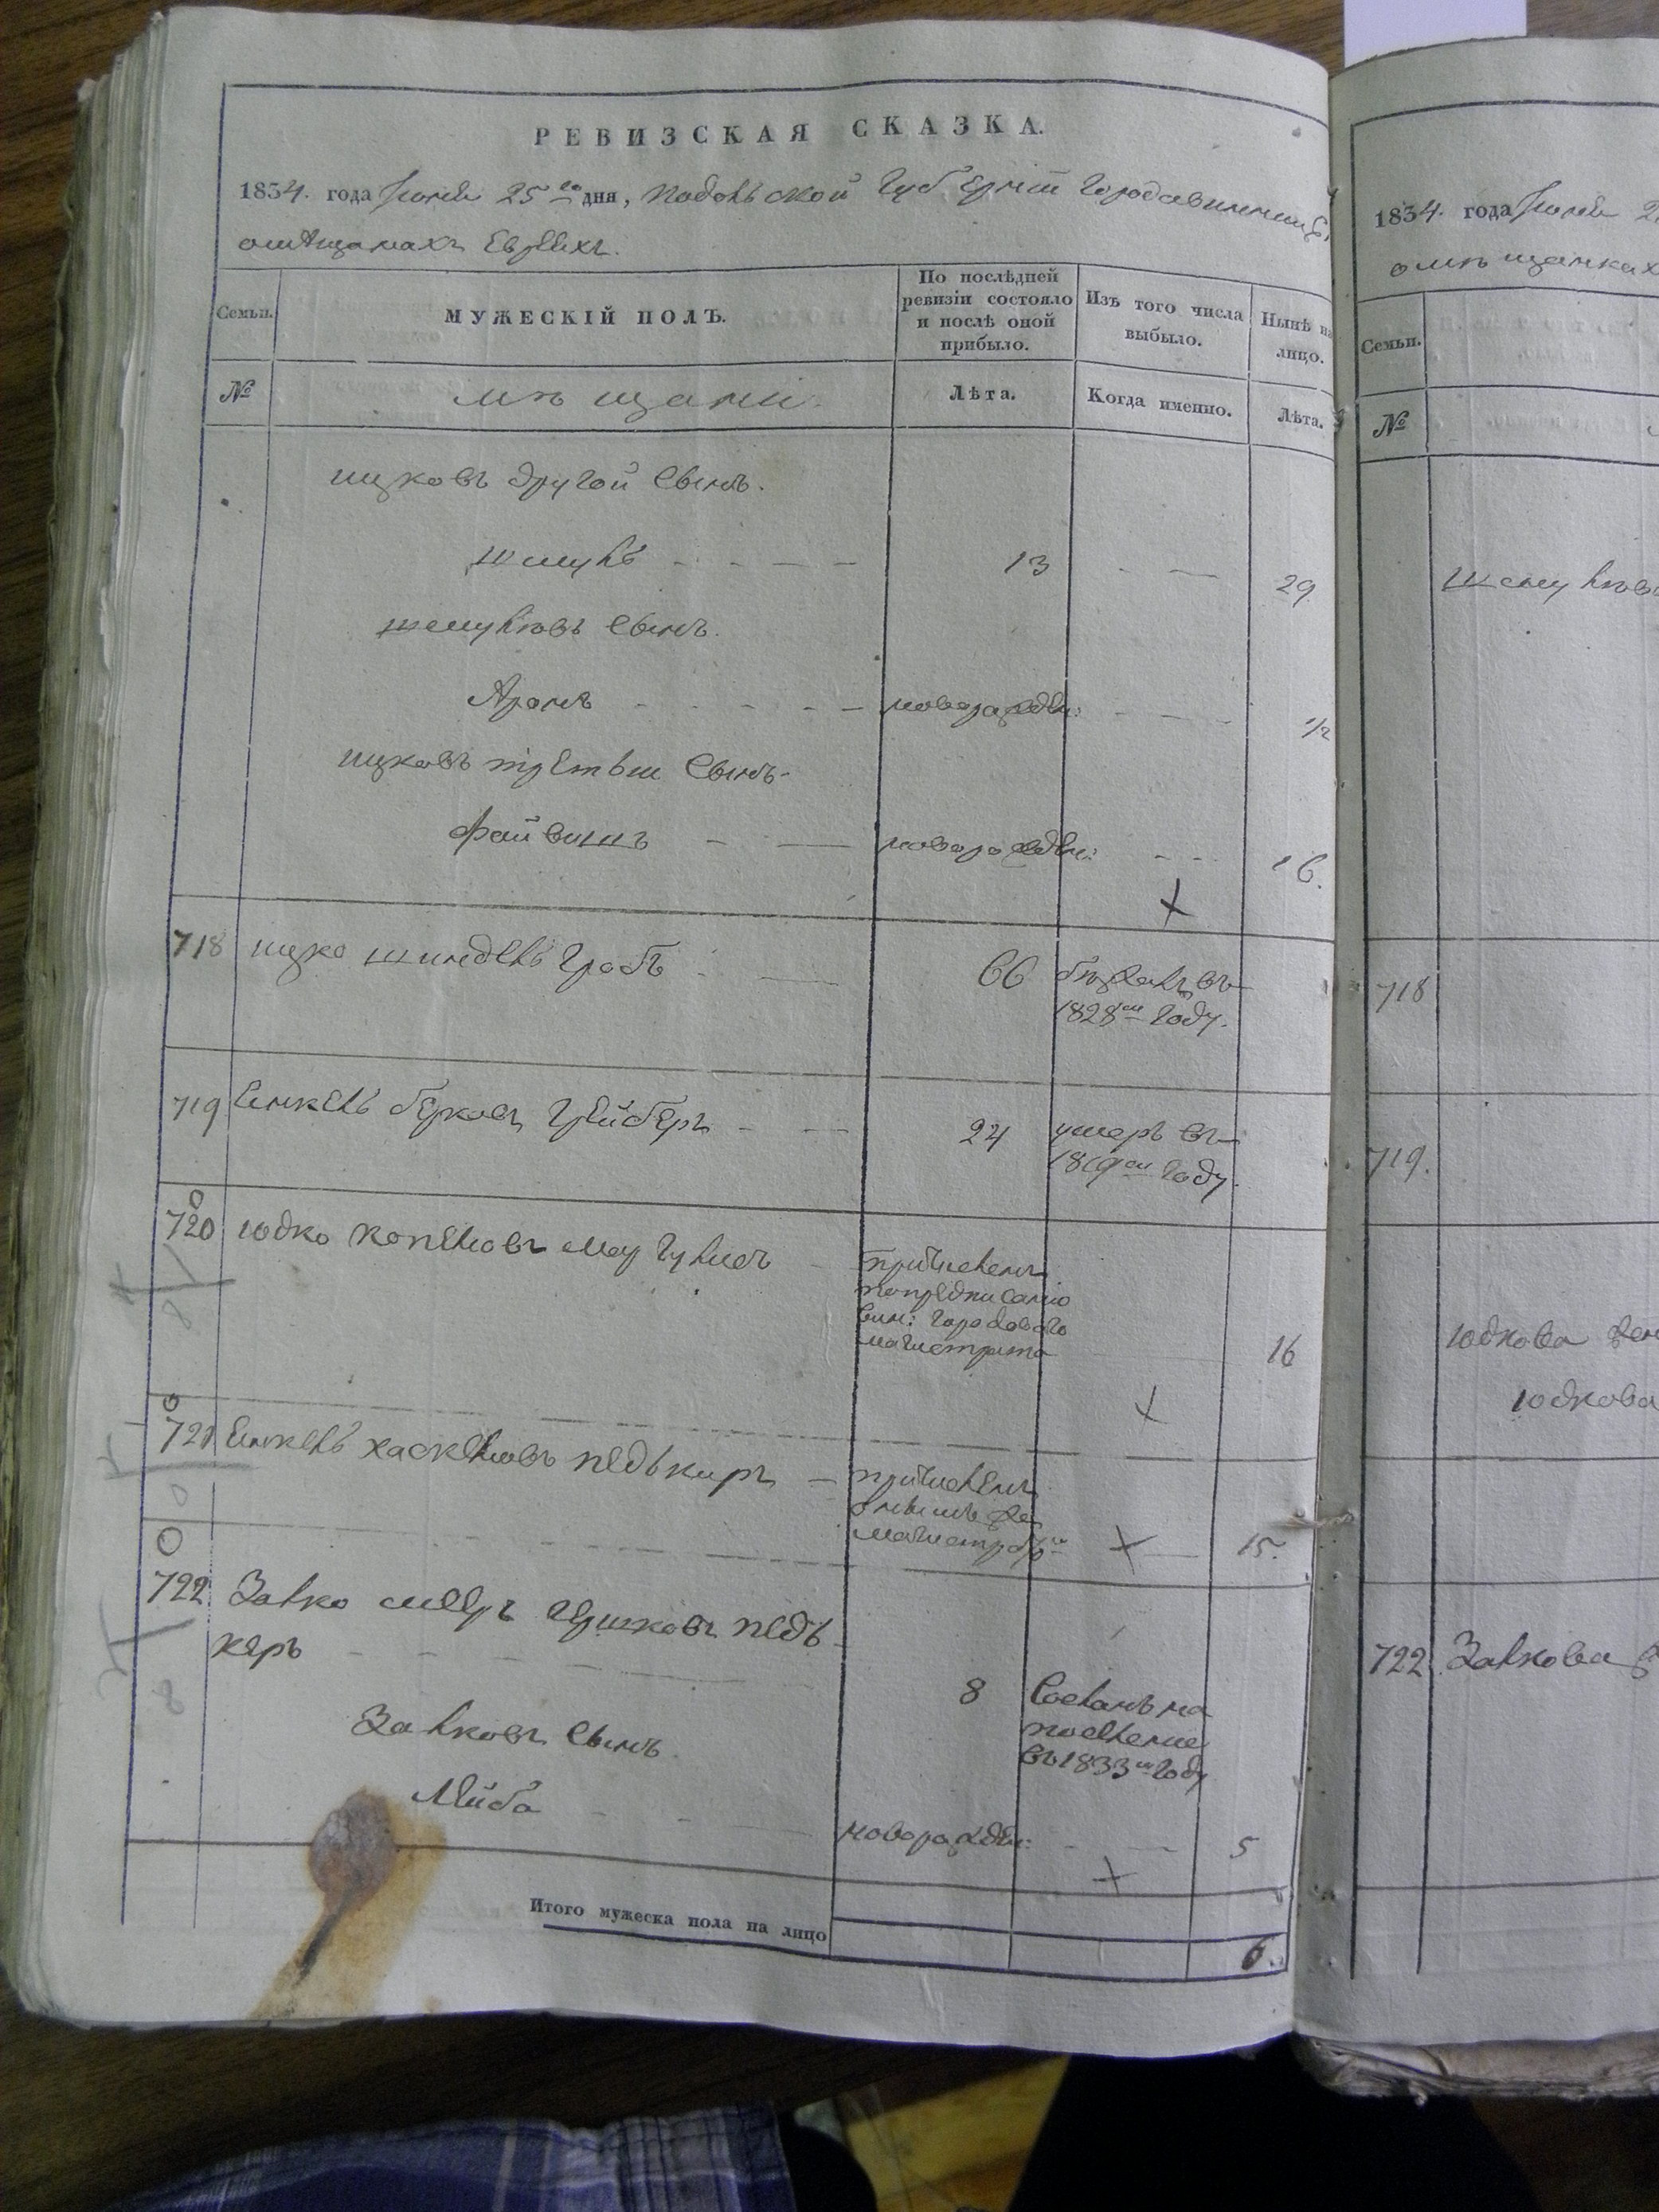 РЕВИЗСКАЯ СКАЗКА.
1834. года Июня 25го дня, Подольской Губерніи Города Винницы,
о мѣщанахъ Евреяхъ.
Семьи.
МУЖЕСКІЙ ПОЛЪ.
По послѣдней ревизіи состояло и послѣ оной прибыло.
Изъ того числа выбыло.
Нынѣ на лицо.
№
мѣщани.
Лѣта.
Когда именно.
Лѣта.
ицковъ другой сынъ.
шмуль 13 29
шмулювъ сынъ.
Аронъ новорожден: 1/2
ицковъ третьи сынъ
Файвишъ новорожден: 16.
718 ицко шиндель гробъ 66 бѣжалъ въ
1828м году.
719 Янкель берковъ Грейберъ 24 умеръ въ
1819м году.
720 юдко
причисленъ
по предписанію
вин: городового
магистрата 16
721 Янкель хаскелювъ педькиръ причисленъ
магистр 15.
722 Залко меер гершковъ педь-
керъ 8 Сосланъ на
поселение
въ 1833м году
Залковъ сынъ
Лейба новорожден: 5
Итого мужеска пола на лицо 6.
1834. года Июня 2
о мѣщанках
Семьи.
№
Шмулюв
718
719.
юдкова жен
юдкова
722 Залкова